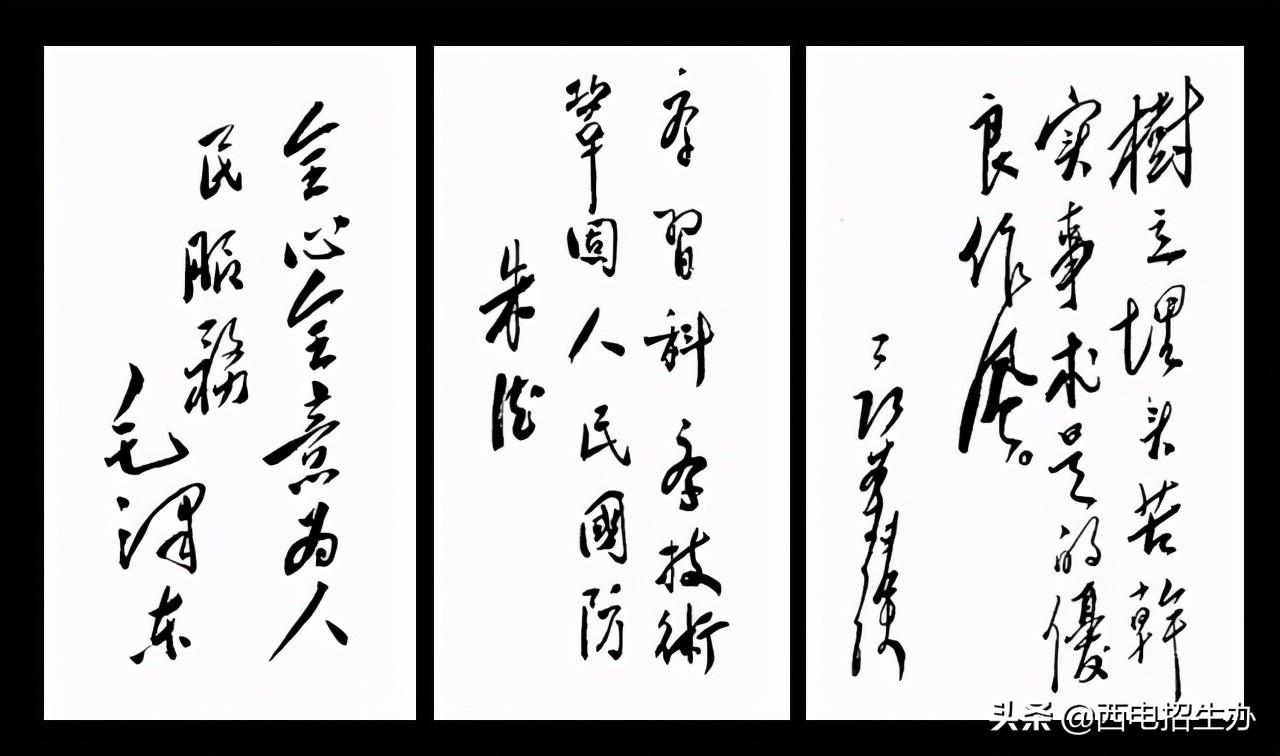 全心全意为人
民服務
毛泽东
学習科学技術
鞏固人民國防
朱德
樹立埋头苦幹
实事求是的優
良作风。
头条 @西电招生办